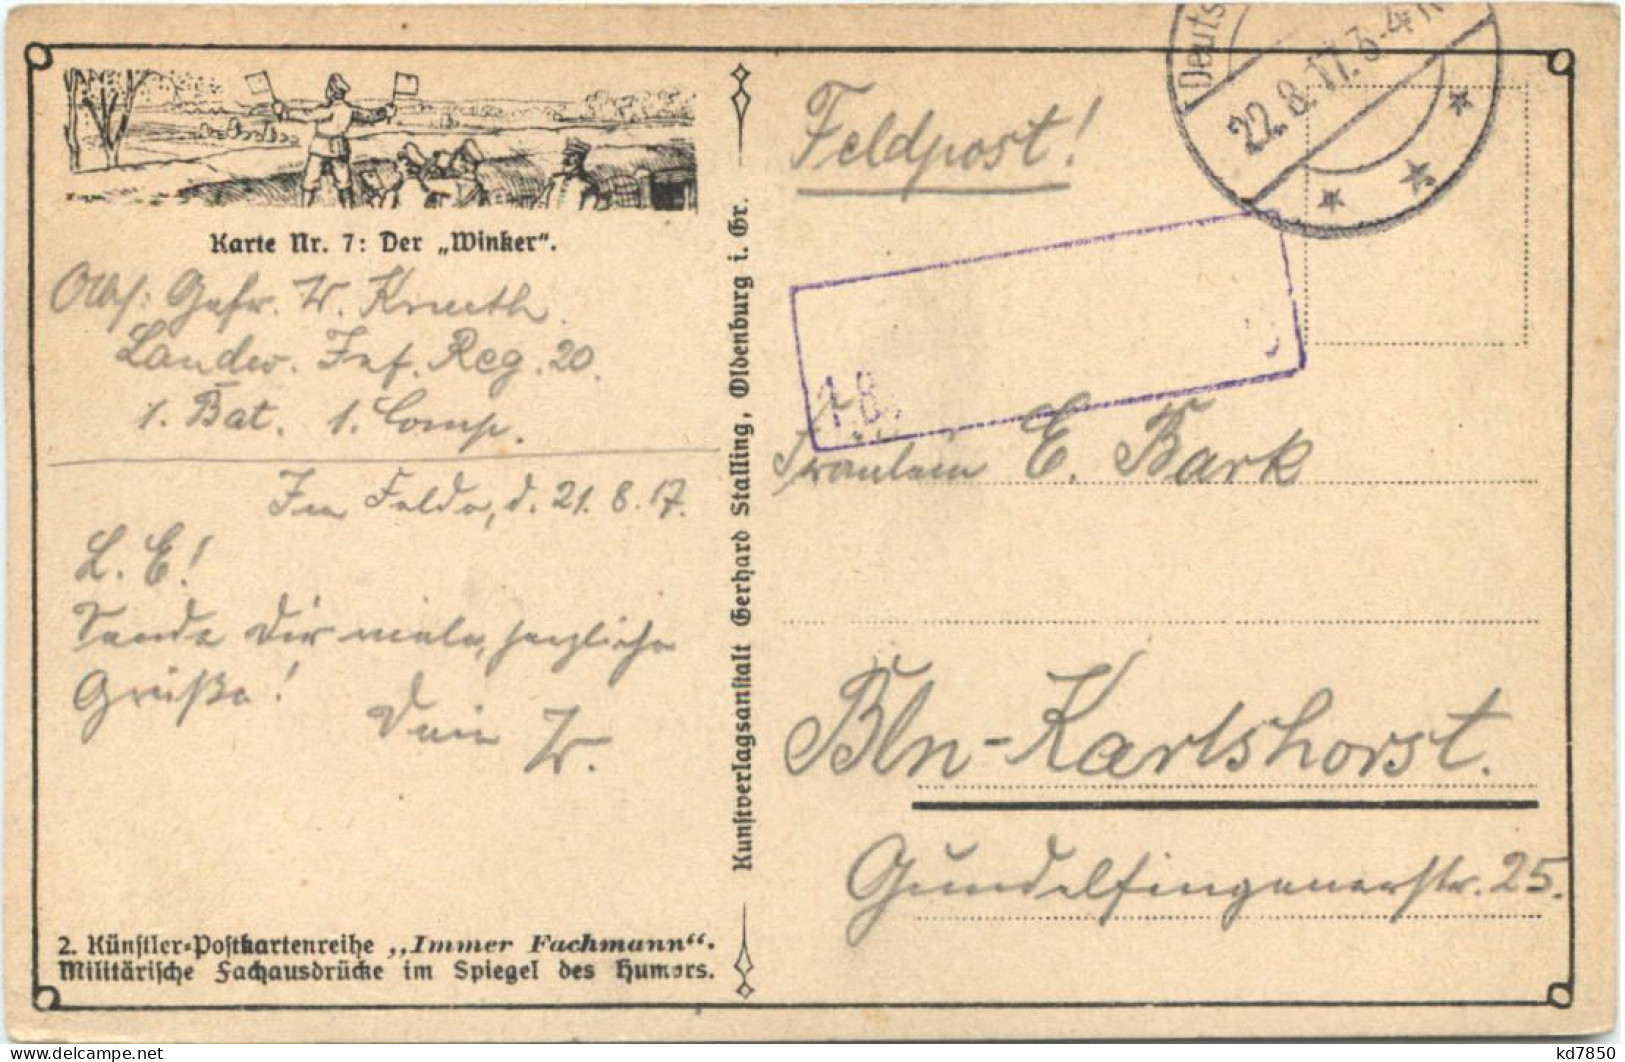 Karte Nr. 7: Der „Winker“.
Abs: Gefr. W. Knuth.
Landw. Inf. Reg. 20.
1. Bat. 1. Comp.
Im Felde, d. 21. 8. 17.
L. E!
Sende Dir viele, herzliche
Grüße!
Dein W.
2. Künstler-Postkartenreihe „Immer Fachmann“.
Militärische Fachausdrücke im Spiegel des Humors.
Kunstverlagsanstalt Gerhard Stalling, Oldenburg i. Gr.
Feldpost!
Deuts
22.8.17.3-4
1. B
Fräulein E. Bark
Bln-Karlshorst.
Gundelfingenerstr. 25.
kd7850